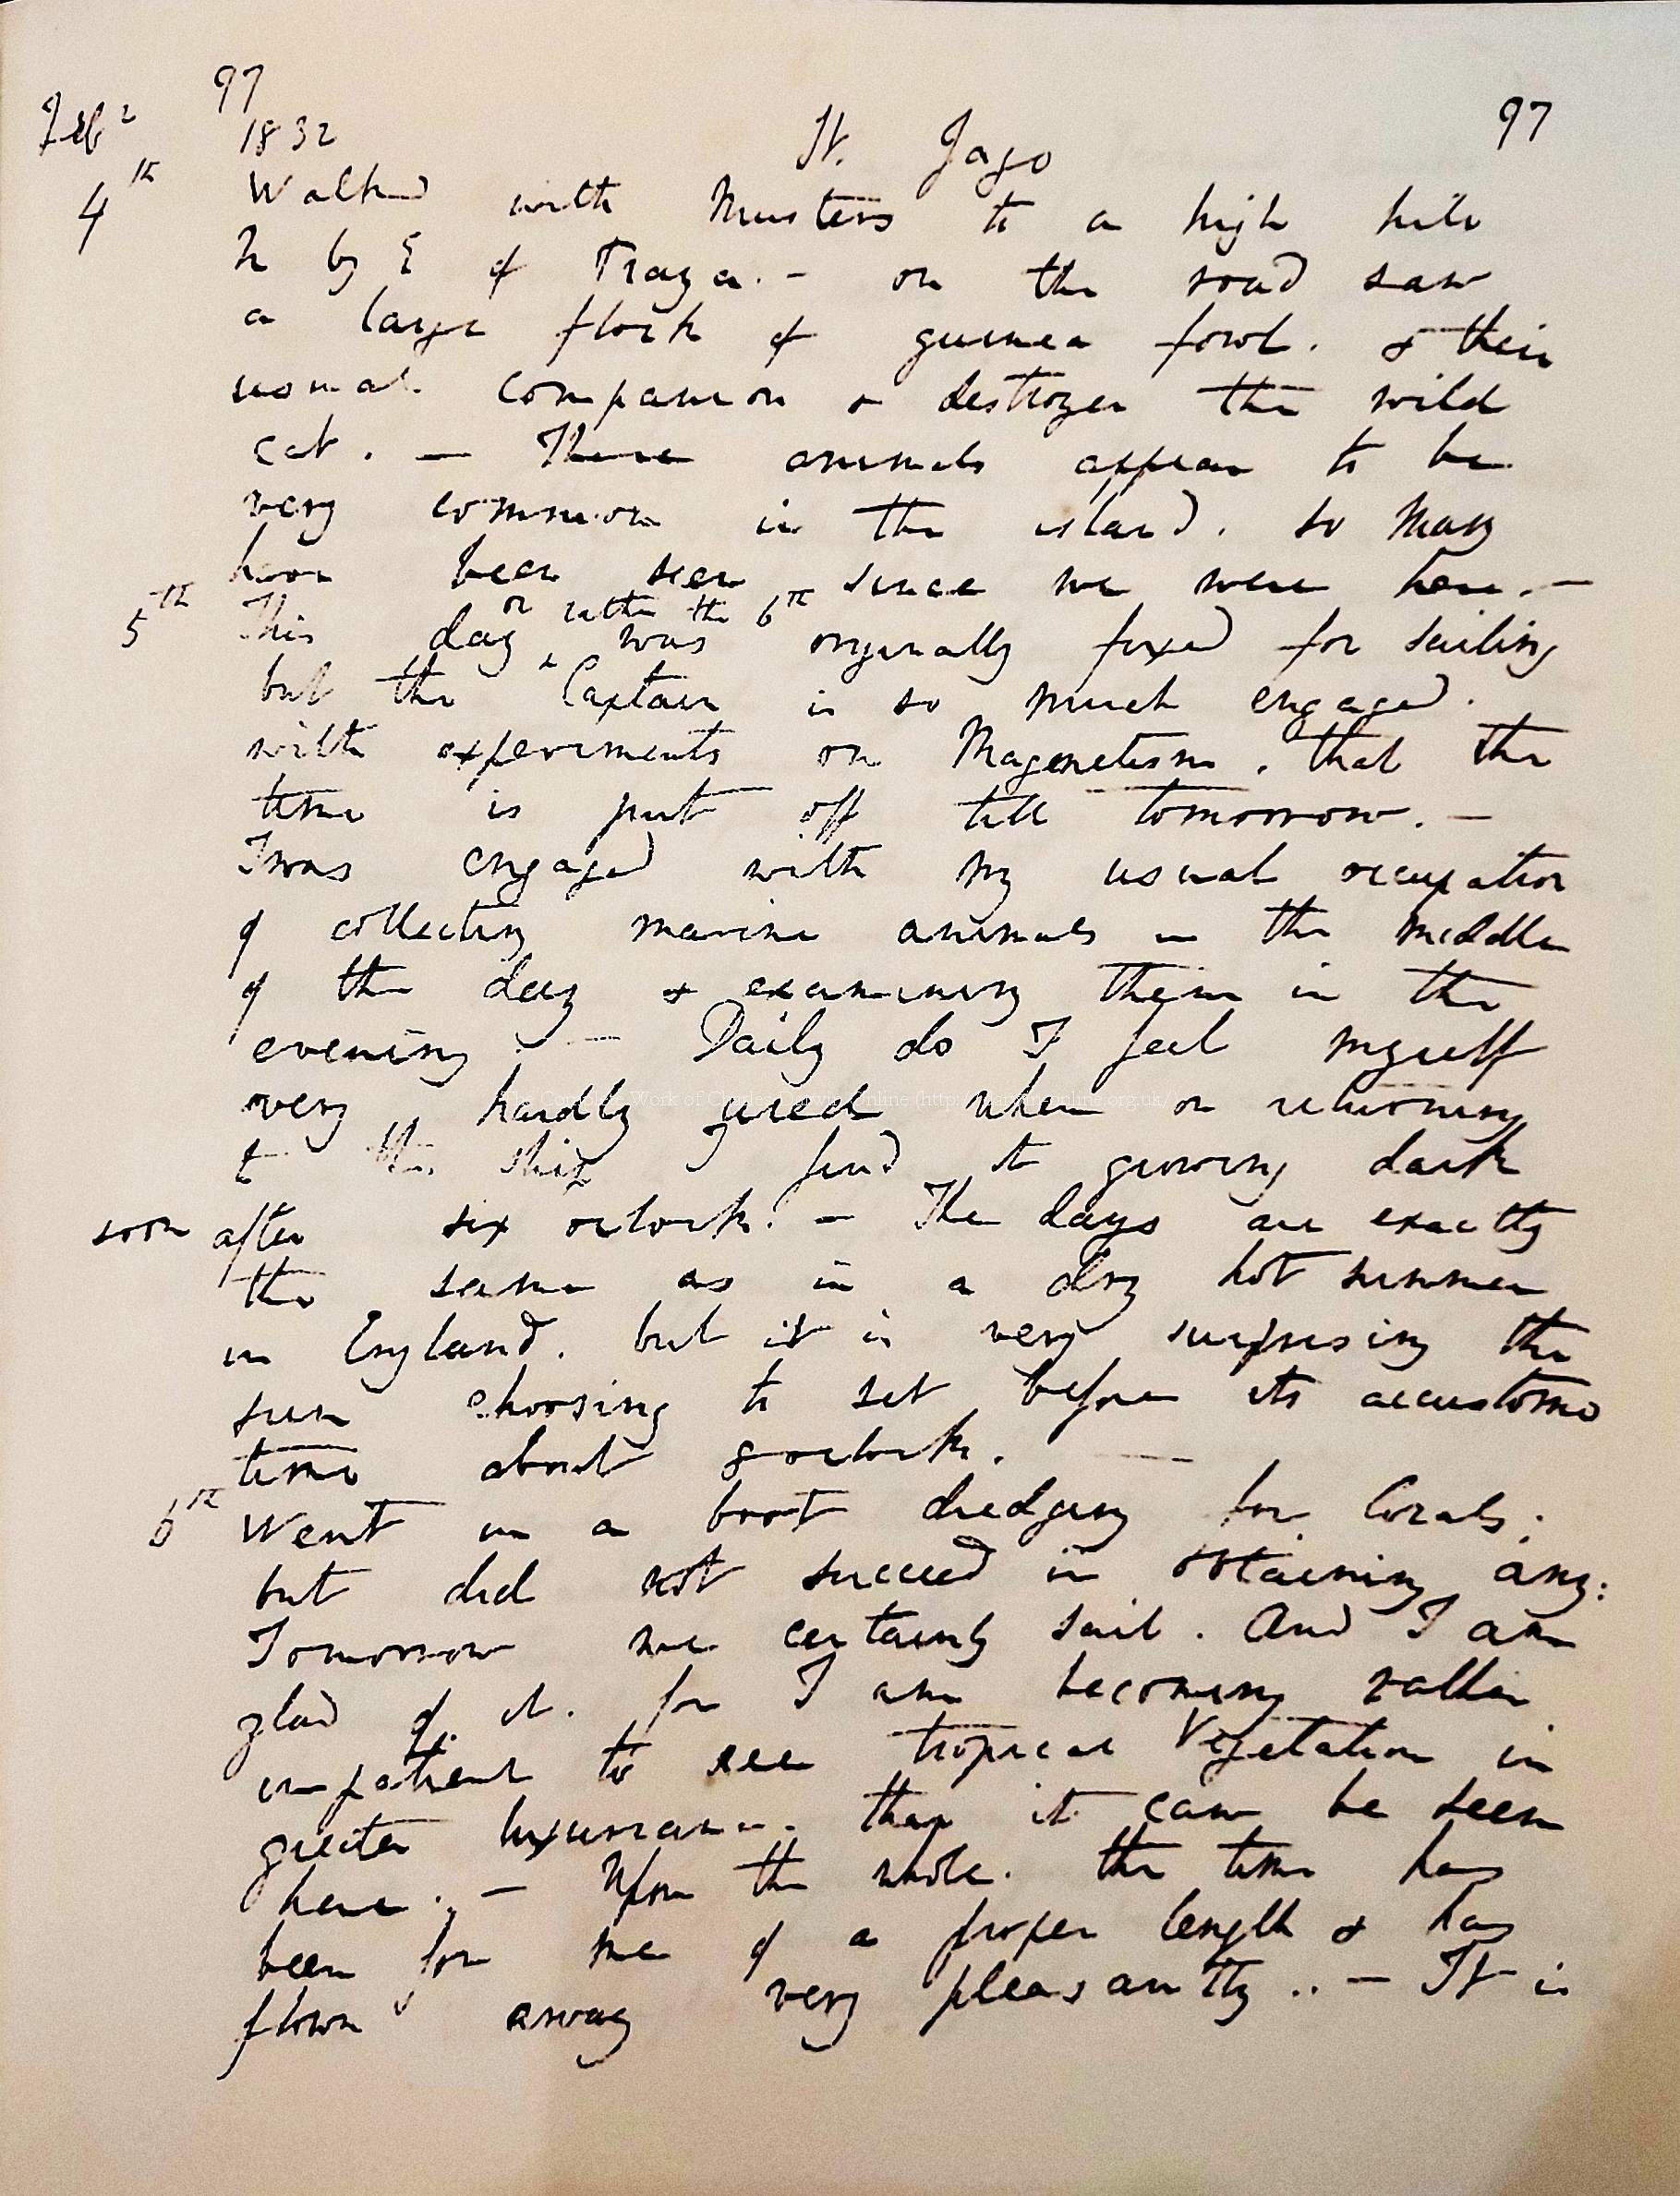 97
Feb 2 1832 St. Jago 97
4th Walked with Musters to a high hill
N by E of Praya. — on the road saw
a large flock of guinea fowl. & their
usual companion & destroyer the wild
cat. — These animals appear to be
very common in the island. so many
have been seen since we were here. —
or rather the 6th
5th This day was originally fixed for sailing
but the Captain is so much engaged.
with experiments on Magenetism, that the
time is put off till tomorrow. —
I was engaged with my usual occupation
of collecting marine animals in the middle
of the day & examining them in the
evening. — Daily do I feel myself
very hardly used when on returning
to the ship I find it growing dark
soon after six oclock. — The days are exactly
the same as in a dry hot summer
in England. but it is very surprising the
sun choosing to set before its accustomed
time about 8 oclock. —
6th Went in a boat dredging for Corals;
but did not succeed in obtaining any:
Tomorrow we certainly sail. And I am
glad of it. for I am becoming rather
impatient to see tropical Vegetation in
greater luxuriance. than it can be seen
here. — Upon the whole. the time has
been for me of a proper length & has
flown away very pleasantly.. — It is